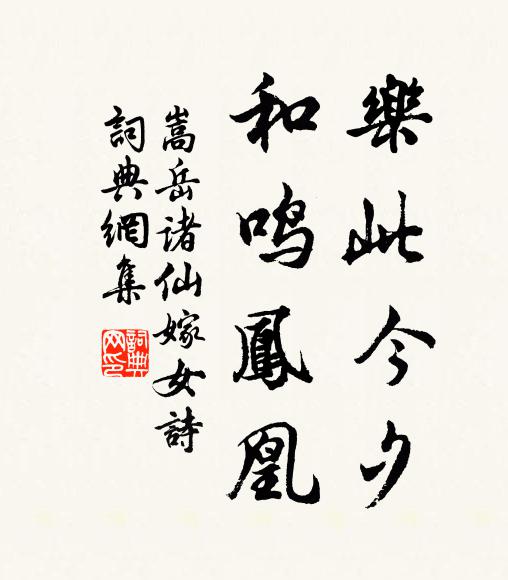 樂此今夕
和鸣鳳凰
嵩岳诸仙嫁女詩
詞典網集
詞典网印